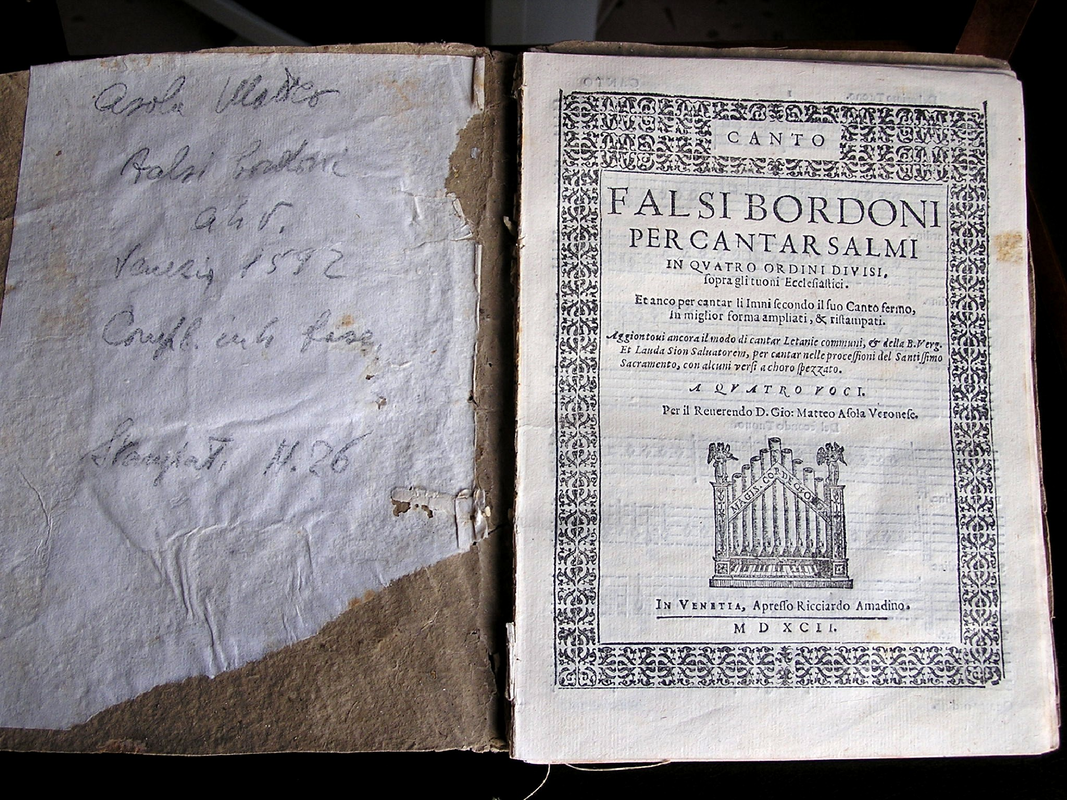 Asola Matteo
Falsi Bordoni
a 4 v.
Venezia 1592
Compl. in 4 fasc.
Stampati N. 26
CANTO
FALSI BORDONI
PER CANTAR SALMI
IN QVATRO ORDINI DIVISI,
ſopra gli tuoni Eccleſiaſtici.
Et anco per cantar li Inni ſecondo il ſuo Canto fermo,
In miglior forma ampliati, & riſtampati.
Aggiontoui ancora il modo di cantar Letanie communi, & della B. Verg.
Et Lauda Sion Saluatorem, per cantar nelle proceſſioni del Santiſſimo
Sacramento, con alcuni verſi a choro ſpezzato.
A QVATRO VOCI.
Per il Reuerendo D. Gio: Matteo Aſola Veroneſe.
MAGIS. CORDE. Q. ORG
IN VENETIA, Apreſſo Ricciardo Amadino.
M D XCII.